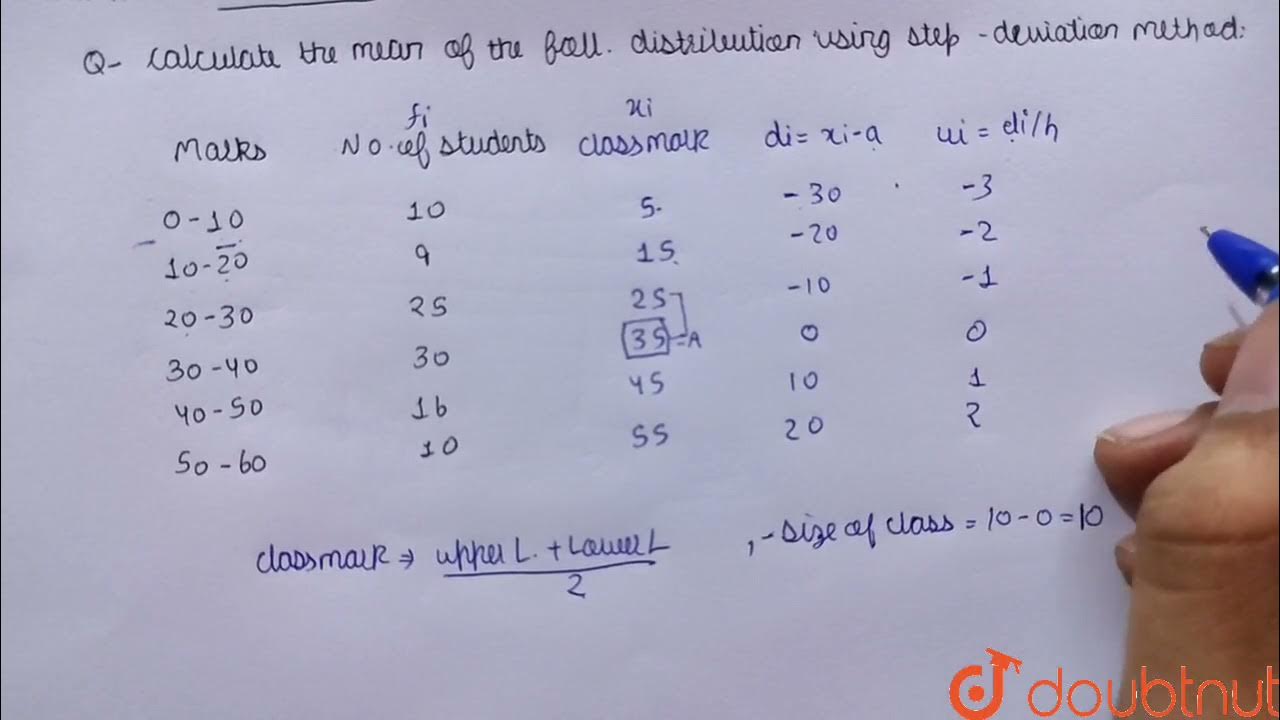 Q- Calculate the mean of the foll. distribution using step-deviation method:
fi xi
Marks No. of students classmark di = xi-a ui = di/h
0-10 10 5. -30 -3
10-20 9 15 -20 -2
20-30 25 25 -10 -1
30-40 30 35 =A 0 0
40-50 16 45 10 1
50-60 10 55 20 2
classmark ⇒ upper L. + Lower L , -size of class = 10-0=10
2
doubtnut